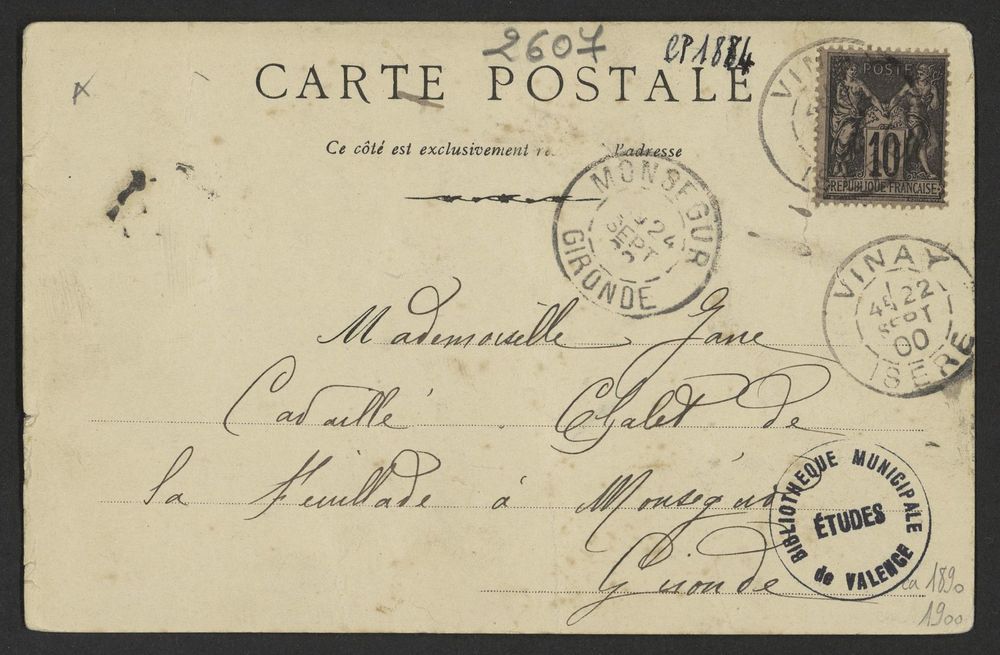 2607 CP1884
CARTE POSTALE
Ce côté est exclusivement l'adresse
VINAY
POSTE
10
RÉPUBLIQUE FRANÇAISE
MONSEGUR
24
SEPT
GIRONDE
VINAY
22
SEPT
00
ISERE
Mademoiselle Jane
Cavaillé Chalet de
la Feuillade à Monségur
Gironde
BIBLIOTHEQUE MUNICIPALE
ÉTUDES
de VALENCE
ca 1890
1900